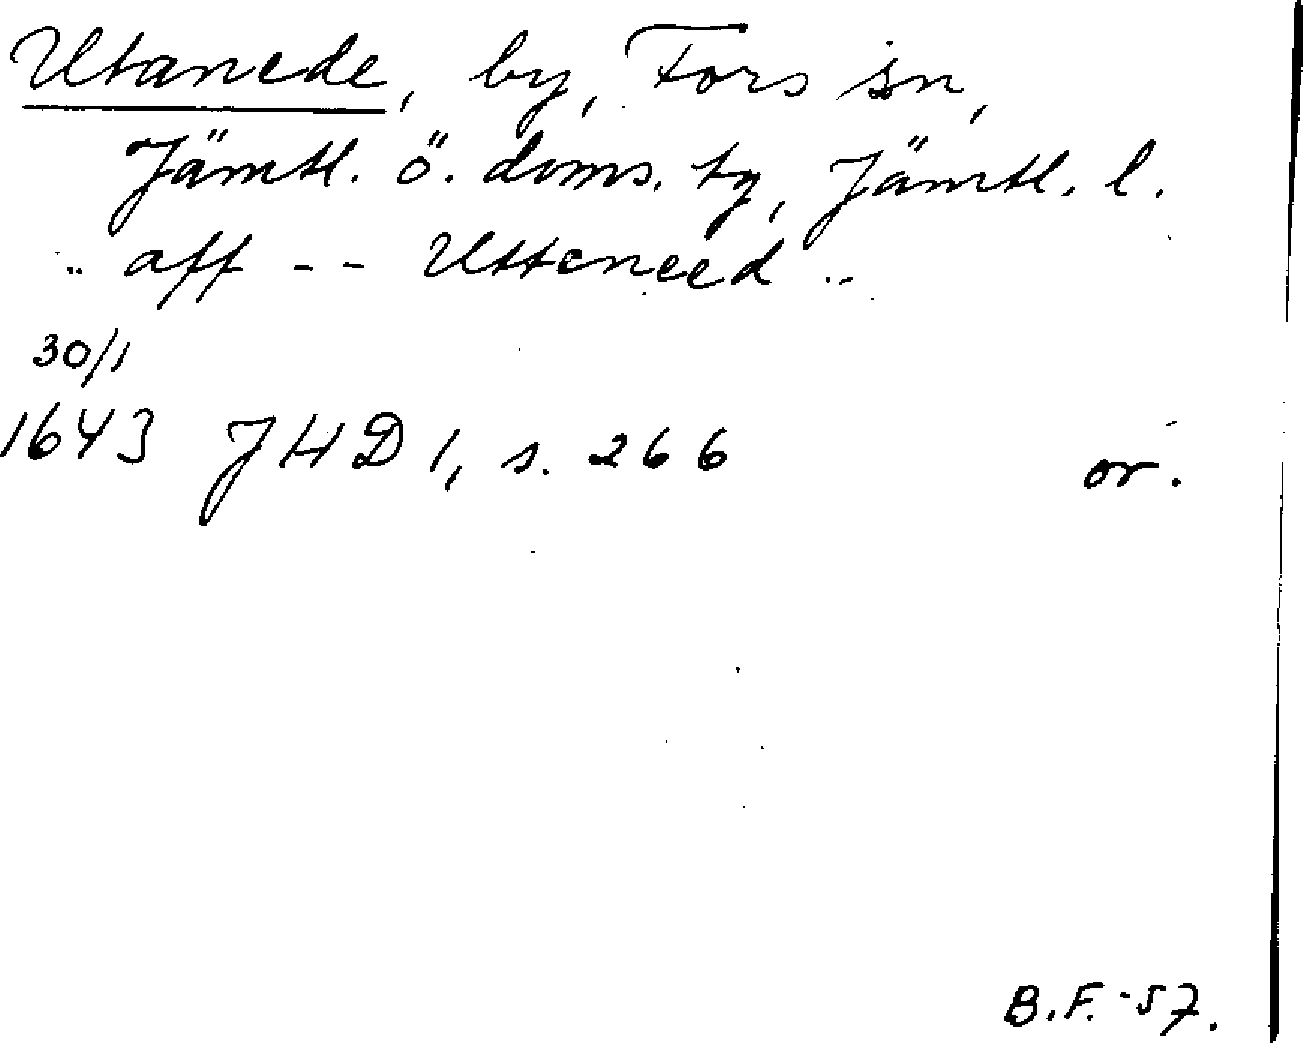 Utanede, by, Fors sn,
Jämtl. ö. doms. tg, Jämtl. l.
.. aff - - Utteneed ..
30/1
1643 JHD 1, s. 266 or.
B.F. -57.